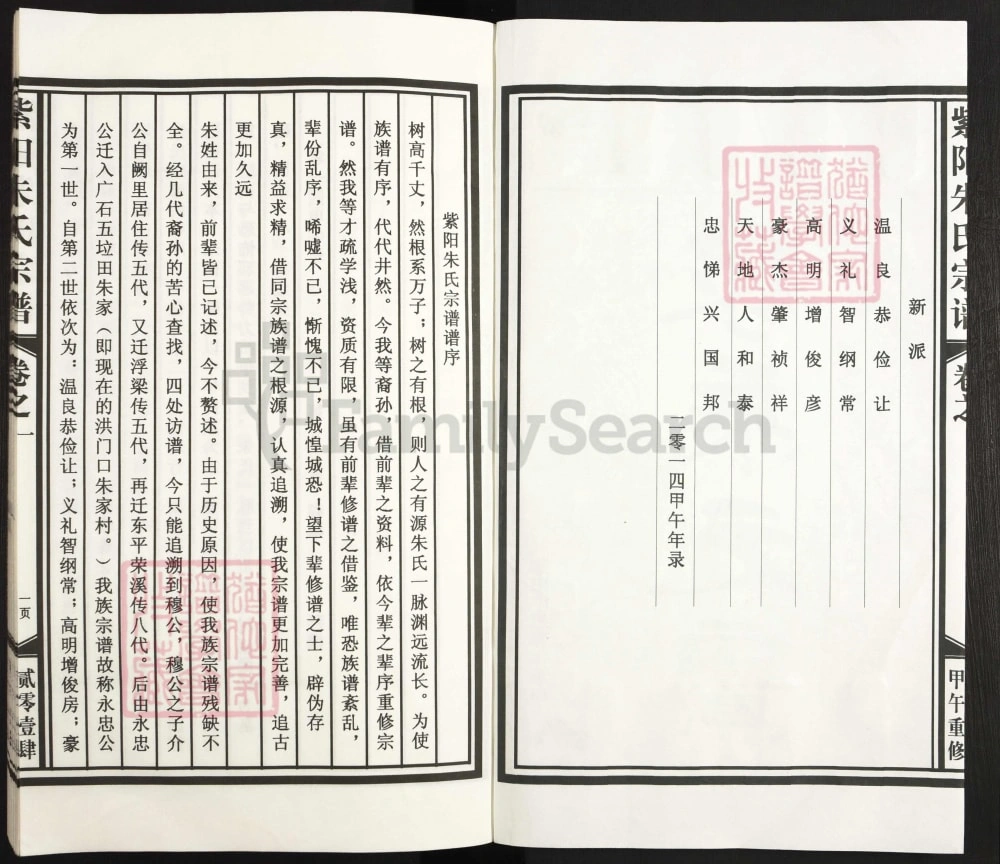 紫阳朱氏宗谱
卷之
甲午重修
新派
温良恭俭让
义礼智纲常
高明增俊彦
豪杰肇祯祥
天地人和泰
忠悌兴国邦
二零一四甲午年录
紫阳朱氏宗谱谱序
树高千丈，然根系万子；树之有根，则人之有源朱氏一脉渊远流长。为使
族谱有序，代代井然。今我等裔孙，借前辈之资料，依今辈之辈序重修宗
谱。然我等才疏学浅，资质有限，虽有前辈修谱之借鉴，唯恐族谱紊乱，
辈份乱序，唏嘘不已，惭愧不已，城惶城恐！望下辈修谱之士，辟伪存
真，精益求精，借同宗族谱之根源，认真追溯，使我宗谱更加完善，追古
更加久远
朱姓由来，前辈皆已记述，今不赘述。由于历史原因，使我族宗谱残缺不
全。经几代裔孙的苦心查找，四处访谱，今只能追溯到穆公，穆公之子介
公自阙里居住传五代，又迁浮梁传五代，再迁东平荣溪传八代。后由永忠
公迁入广石五垃田朱家（即现在的洪门口朱家村。）我族宗谱故称永忠公
为第一世。自第二世依次为：温良恭俭让；义礼智纲常；高明增俊房；豪
紫阳朱氏宗谱
卷之一
一页
贰零壹肆
FamilySearch